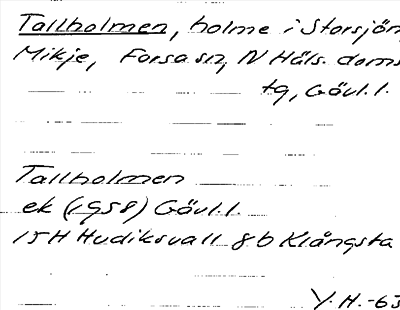 Tallholmen, holme i Storsjön,
Mikje, Forsa sn, N Häls. doms
tg, Gävl.l.
Tallholmen
ek (1958) Gävl.l.
15H Hudiksvall 8b Klångsta
Y.H. -63